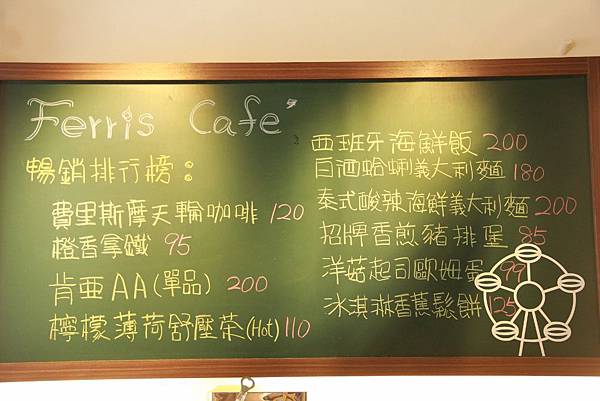 Ferris Cafe
暢銷排行榜：
費里斯摩天輪咖啡 120
橙香拿鐵 95
肯亞AA(單品) 200
檸檬薄荷舒壓茶(Hot) 110
西班牙海鮮飯 200
白酒蛤蜊義大利麵 180
泰式酸辣海鮮義大利麵 200
招牌香煎豬排堡 85
洋菇起司歐姆蛋 99
冰淇淋香蕉鬆餅 125